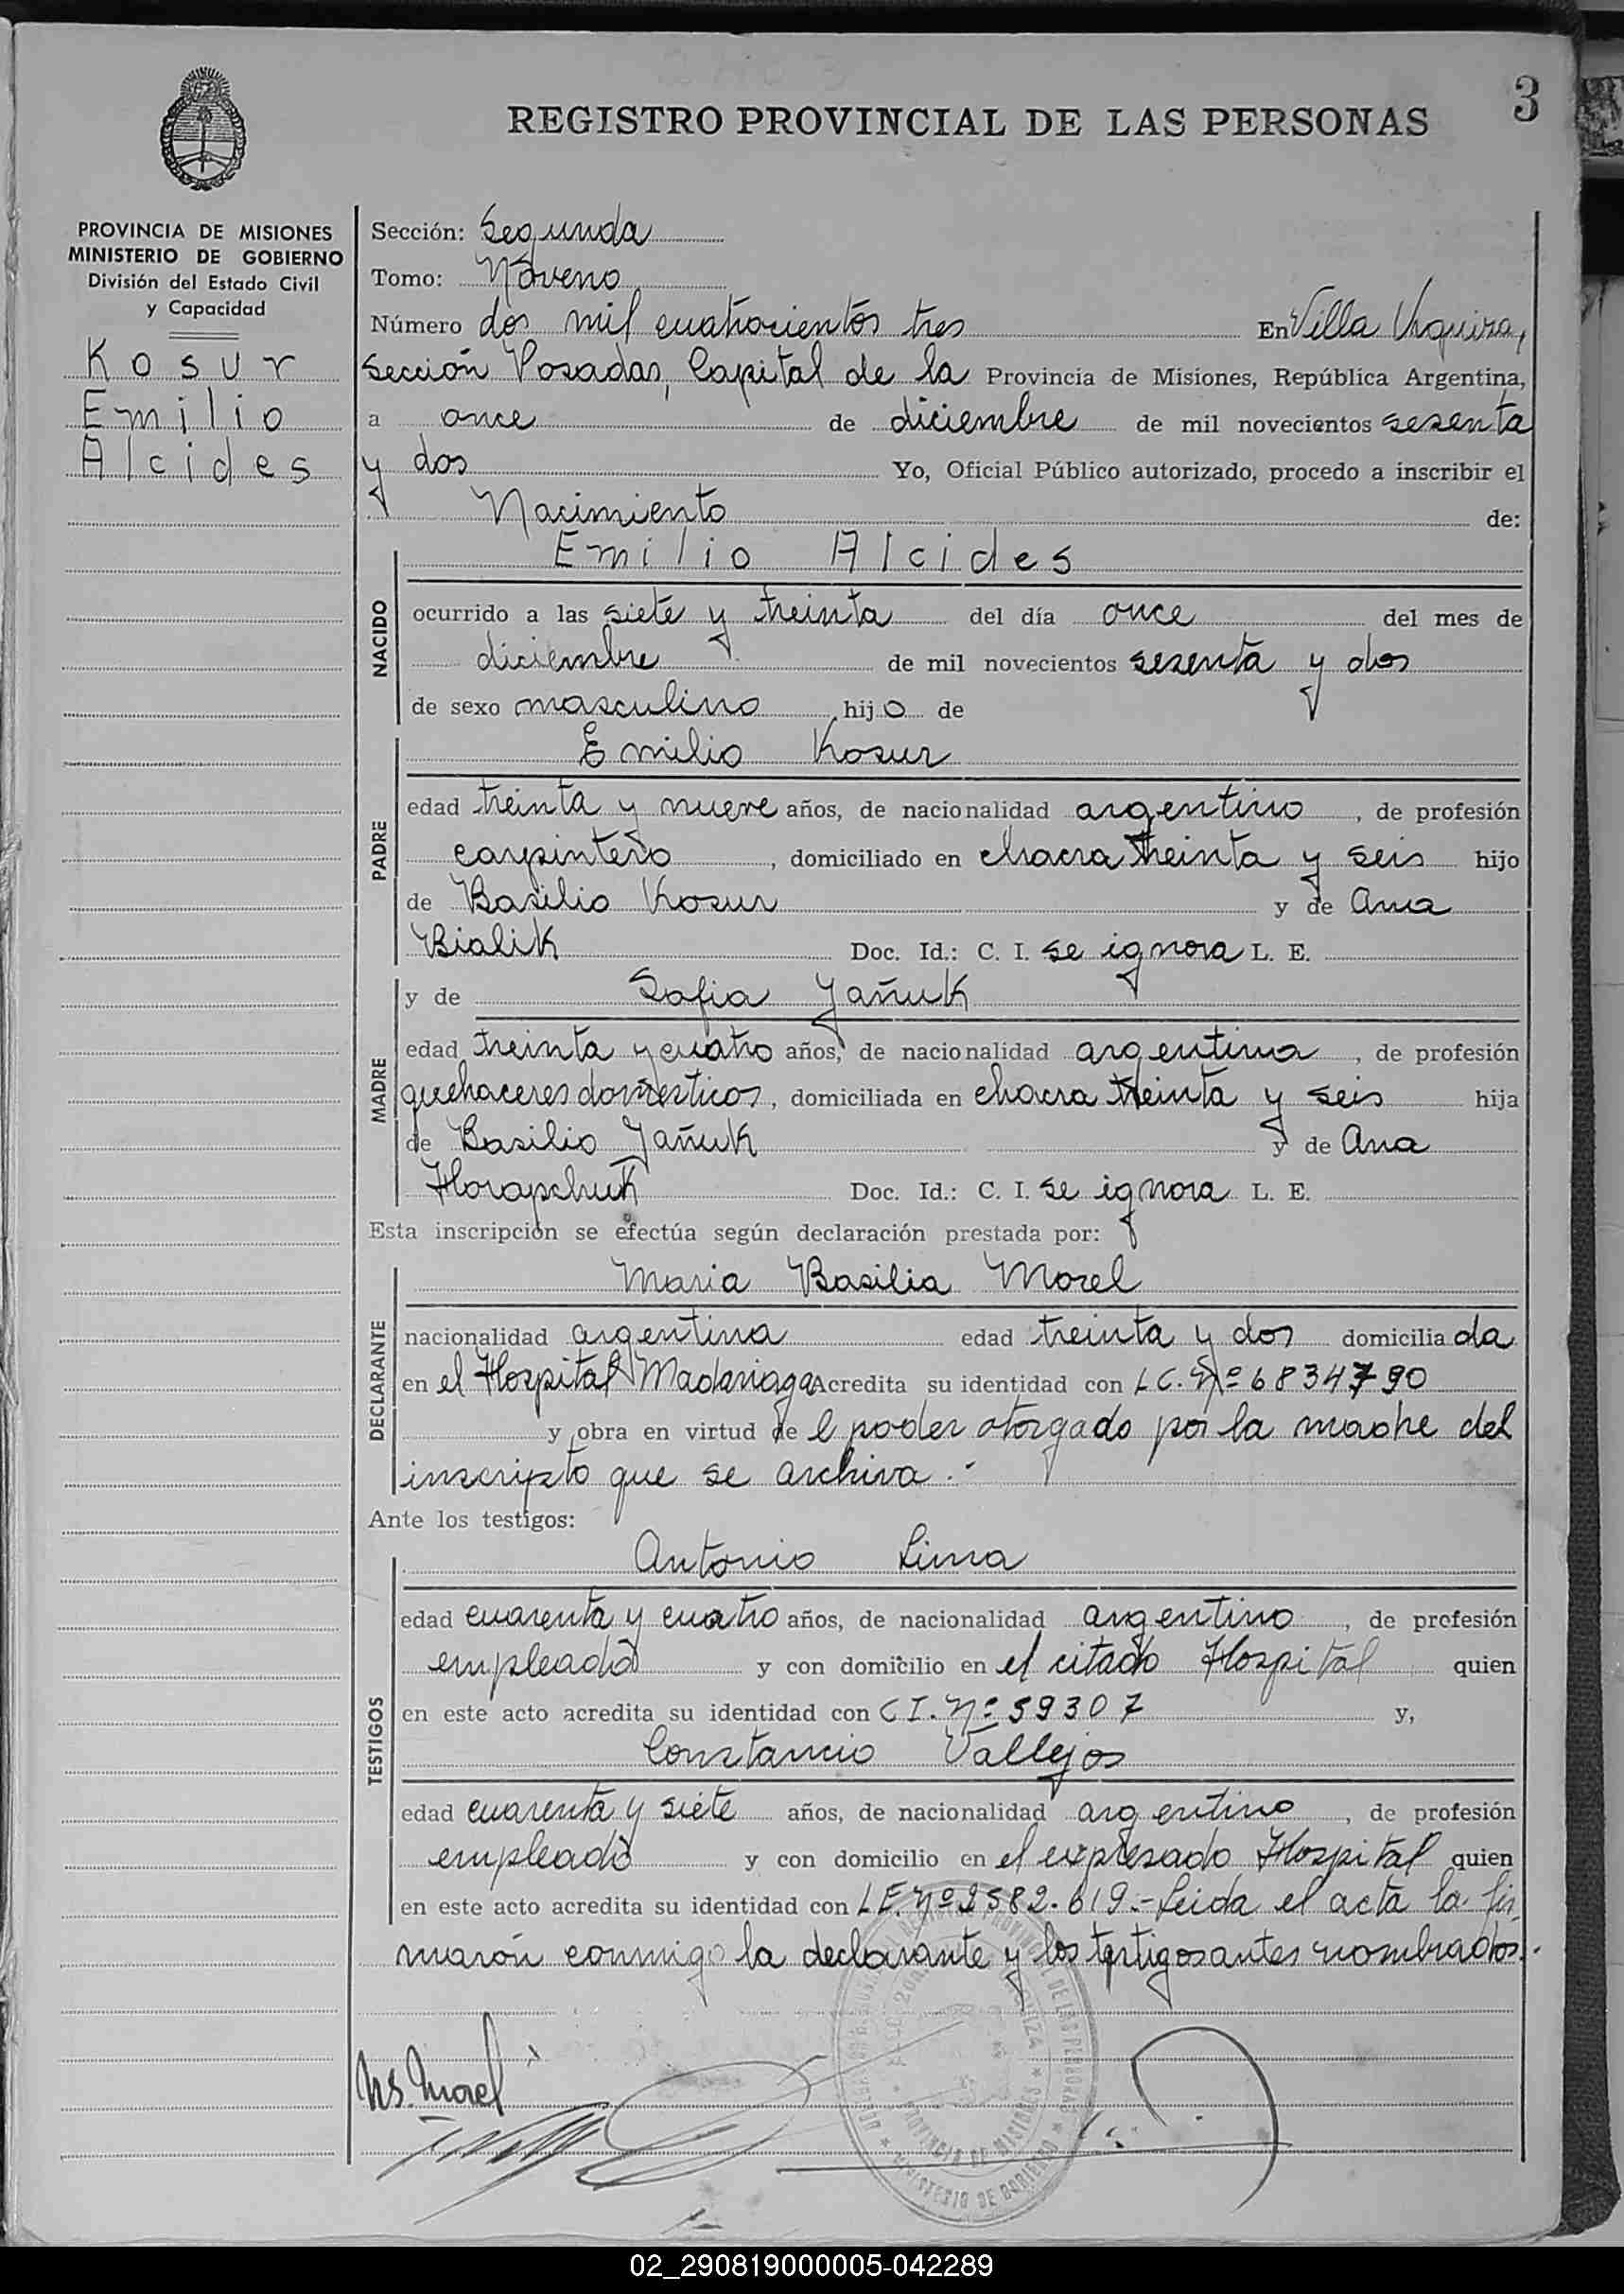 3
REGISTRO PROVINCIAL DE LAS PERSONAS
PROVINCIA DE MISIONES
MINISTERIO DE GOBIERNO
División del Estado Civil
y Capacidad
Kosur
Emilio
Alcides
Sección: Segunda
Tomo: Noveno
Número dos mil cuatrocientos tres En Villa Urquiza,
Sección Posadas, Capital de la Provincia de Misiones, República Argentina,
a once de diciembre de mil novecientos sesenta
y dos Yo, Oficial Público autorizado, procedo a inscribir el
Nacimiento de:
NACIDO
Emilio Alcides
ocurrido a las siete y treinta del día once del mes de
diciembre de mil novecientos sesenta y dos
de sexo masculino, hijo de
PADRE
Emilio Kosur
edad treinta y nueve años, de nacionalidad argentino, de profesión
carpintero, domiciliado en chacra treinta y seis hijo
de Basilio Kosur y de Ana
Bialik Doc. Id.: C. I. se ignora L. E.
MADRE
y de Sofia Yañuk
edad treinta y cuatro años, de nacionalidad argentina, de profesión
quehaceres domésticos, domiciliada en chacra treinta y seis hija
de Basilio Yañuk y de Ana
Horapchuk Doc. Id.: C. I. se ignora L. E.
Esta inscripción se efectúa según declaración prestada por:
DECLARANTE
Maria Basilia Morel
nacionalidad argentina edad treinta y dos domiciliada
en el Hospital Madariaga Acredita su identidad con L C. Nº 6834790
y obra en virtud de l poder otorgado por la madre del
inscripto que se archiva.-
Ante los testigos:
TESTIGOS
Antonio Lima
edad cuarenta y cuatro años, de nacionalidad argentino, de profesión
empleado y con domicilio en el citado Hospital quien
en este acto acredita su identidad con C I. Nº 59307 y,
Constancio Vallejos
edad cuarenta y siete años, de nacionalidad argentino, de profesión
empleado y con domicilio en el expresado Hospital quien
en este acto acredita su identidad con L E. Nº 2582.619.- Leida el acta la fir
maron conmigo la declarante y los testigos antes nombrados.-
Morel
PROVINCIA DE MISIONES
MINISTERIO DE GOBIERNO
02_290819000005-042289